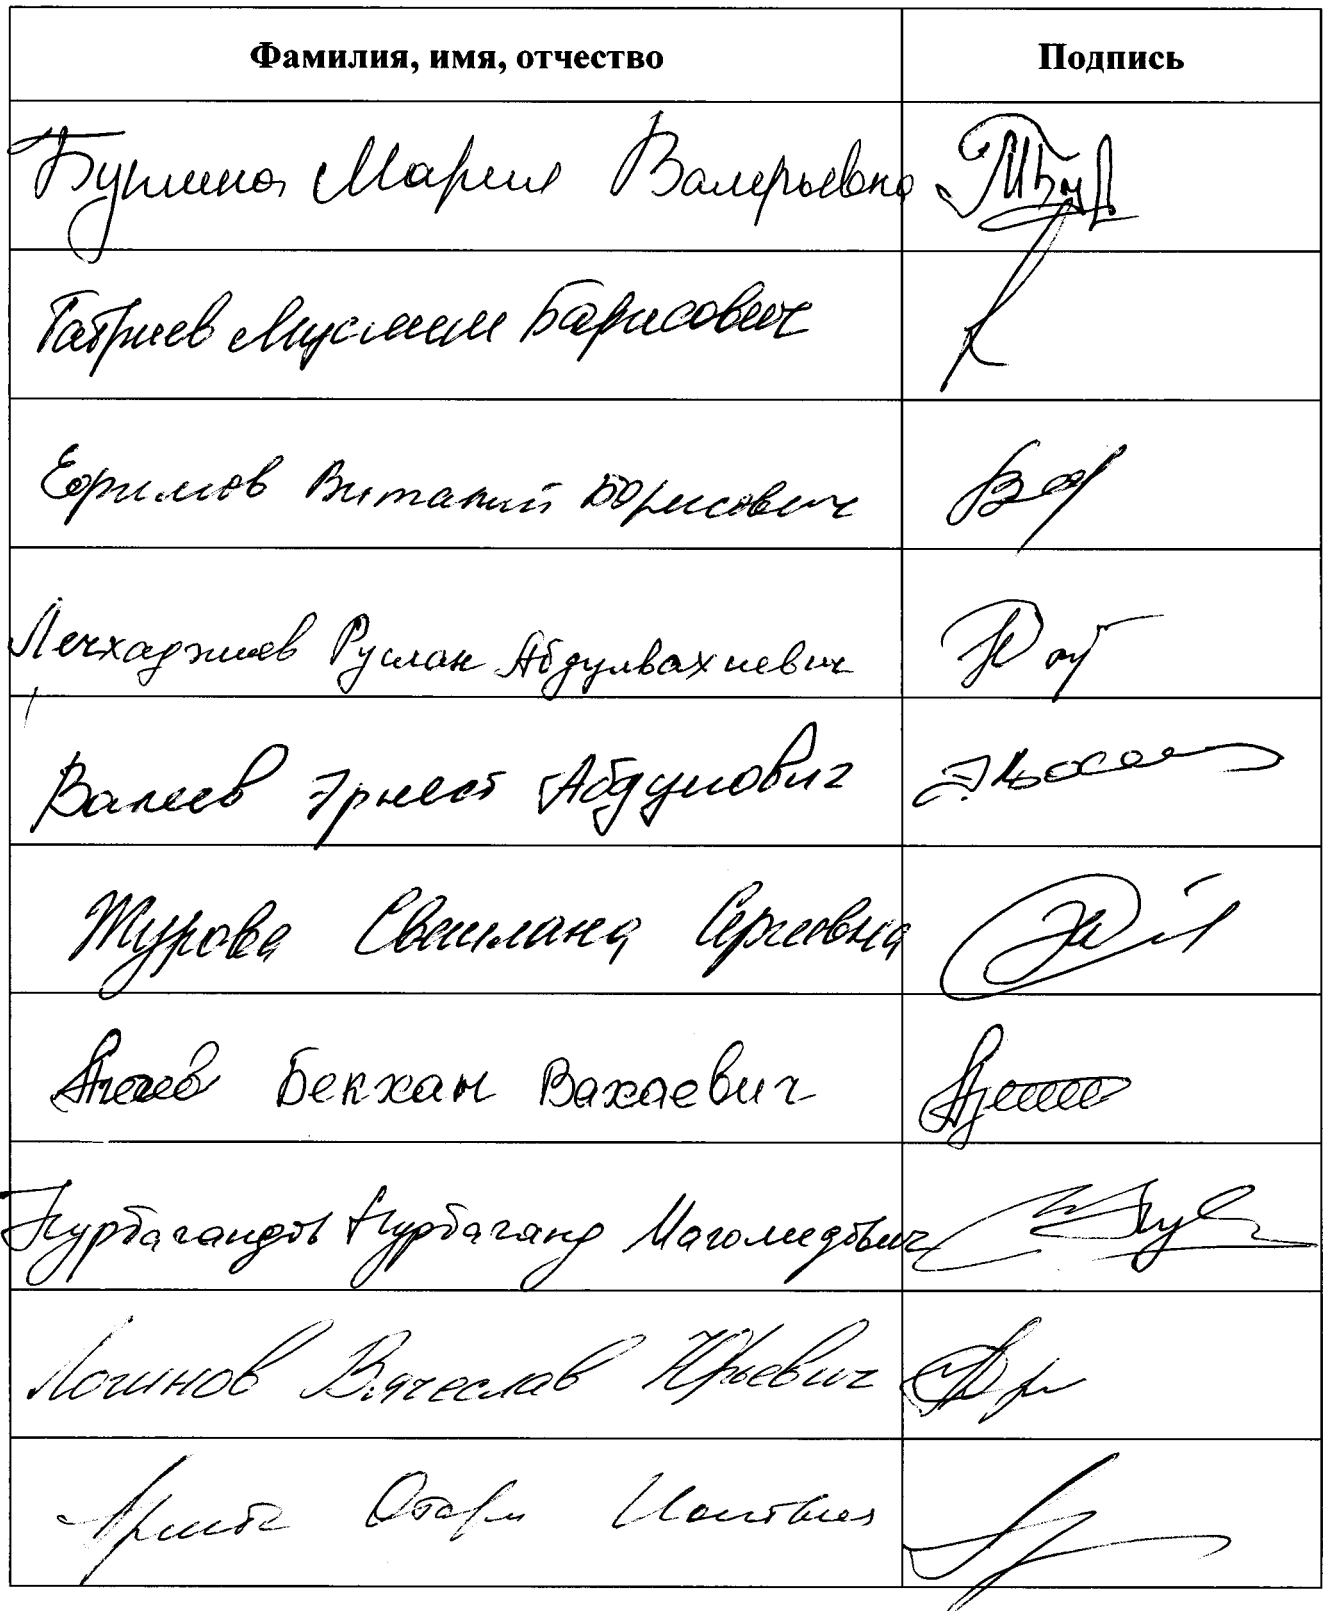 Фамилия, имя, отчество Подпись
Бутина Мария Валерьевна
Татриев Муслим Барисович
Ефимов Виталий Борисович
Лечхаджиев Руслан Абдулвахиевич
Валеев Эрнест Абдулович
Журова Светлана Сергеевна
Бекхан Вахаевич
Курбагандов Нурбаганд Магомедович
Логинов Вячеслав Юрьевич
Аршба Отари Ионтьевич